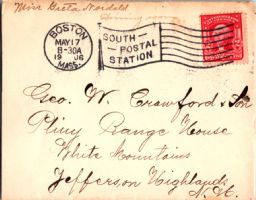 Miss Greta Nordahl
BOSTON
MAY 17
8-30A
1906
MASS.
SOUTH
POSTAL
STATION
Geo. W. Crawford & Son
Pliny Range House
White Mountains
Jefferson Highlands
N.H.